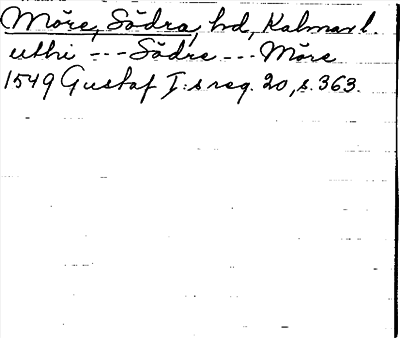 Möre, Södra, hd, Kalmar l.
uthi --- Södre --- Möre
1549 Gustaf I:s reg. 20, s. 363.